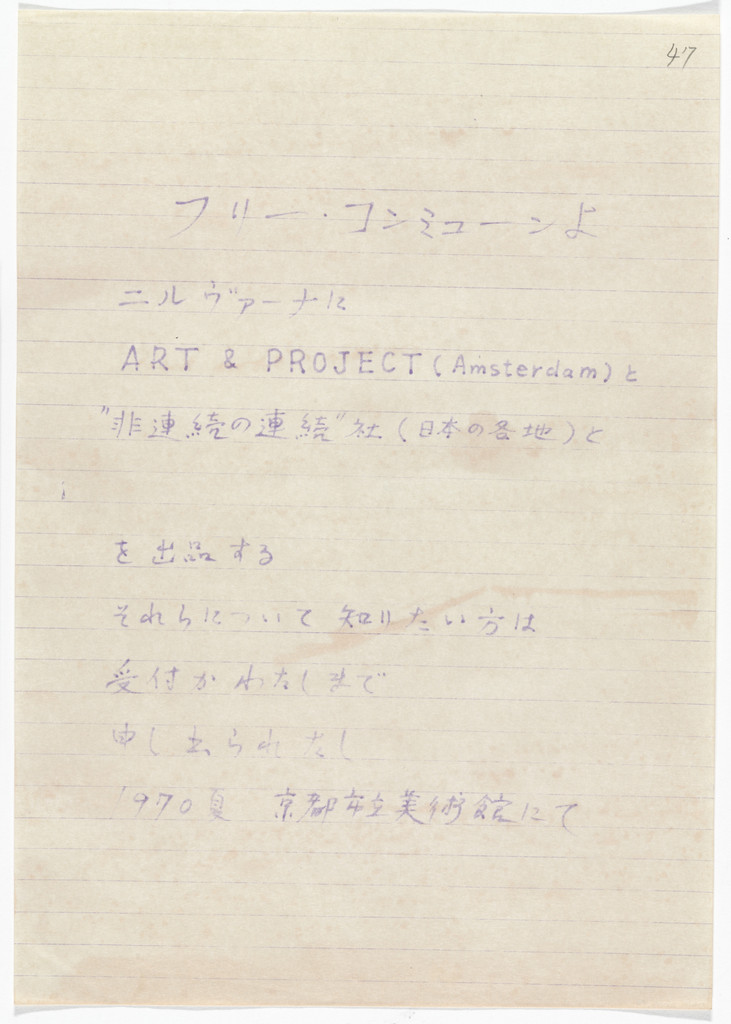 47
フリー・コンミューンよ
ニルヴァーナに
ART & PROJECT (Amsterdam) と
"非連続の連続"社 (日本の各地) と
を出品する
それらについて知りたい方は
受付かわたしまで
申し出られたし
1970夏 京都市立美術館にて